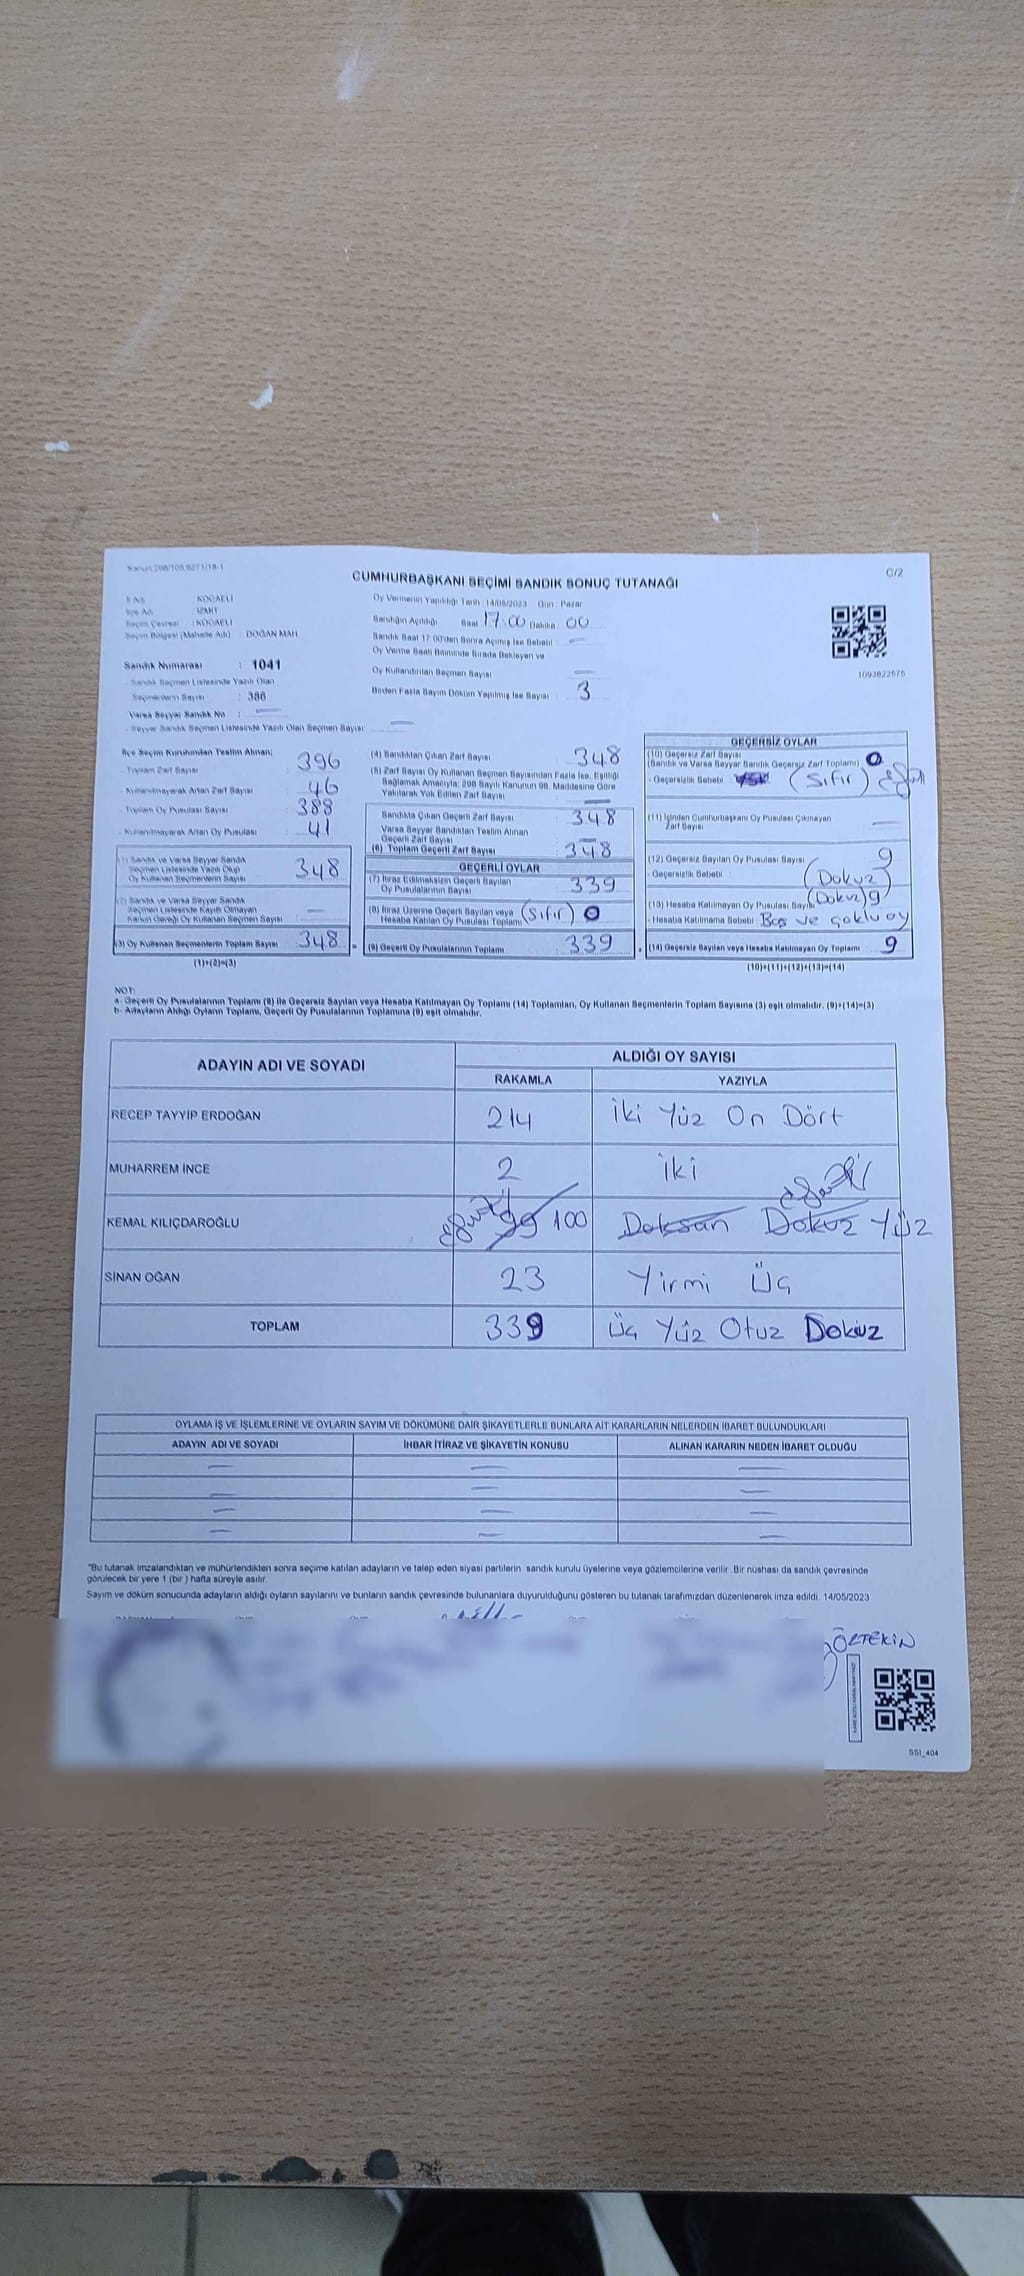 Kanun:298/105,6271/18-1
C/2
CUMHURBAŞKANI SEÇİMİ SANDIK SONUÇ TUTANAĞI
İl Adı : KOCAELİ
İlçe Adı : İZMİT
Seçim Çevresi : KOCAELİ
Seçim Bölgesi (Mahalle Adı) : DOĞAN MAH
Sandık Numarası : 1041
- Sandık Seçmen Listesinde Yazılı Olan
Seçmenlerin Sayısı : 386
Varsa Seyyar Sandık No : —
- Seyyar Sandık Seçmen Listesinde Yazılı Olan Seçmen Sayısı: —
Oy Vermenin Yapıldığı Tarih : 14/05/2023 Gün : Pazar
Sandığın Açıldığı Saat 17:00 Dakika 00
Sandık Saat 17:00'den Sonra Açılmış İse Sebebi : —
Oy Verme Saati Bitiminde Sırada Bekleyen ve
Oy Kullandırılan Seçmen Sayısı : —
Birden Fazla Sayım Döküm Yapılmış İse Sayısı : 3
1093822676
İlçe Seçim Kurulundan Teslim Alınan;
- Toplam Zarf Sayısı : 396
- Kullanılmayarak Artan Zarf Sayısı : 46
- Toplam Oy Pusulası Sayısı : 388
- Kullanılmayarak Artan Oy Pusulası : 41
(1) Sandık ve Varsa Seyyar Sandık
Seçmen Listesinde Yazılı Olup
Oy Kullanan Seçmenlerin Sayısı : 348
(2) Sandık ve Varsa Seyyar Sandık
Seçmen Listesinde Kayıtlı Olmayan
Kanun Gereği Oy Kullanan Seçmen Sayısı : —
(3) Oy Kullanan Seçmenlerin Toplam Sayısı : 348
(1)+(2)=(3)
(4) Sandıktan Çıkan Zarf Sayısı : 348
(5) Zarf Sayısı Oy Kullanan Seçmen Sayısından Fazla İse, Eşitliği
Sağlamak Amacıyla; 298 Sayılı Kanunun 98. Maddesine Göre
Yakılarak Yok Edilen Zarf Sayısı : —
Sandıkta Çıkan Geçerli Zarf Sayısı : 348
Varsa Seyyar Sandıktan Teslim Alınan
Geçerli Zarf Sayısı : —
(6) Toplam Geçerli Zarf Sayısı : 348
GEÇERLİ OYLAR
(7) İtiraz Edilmeksizin Geçerli Sayılan
Oy Pusulalarının Sayısı : 339
(8) İtiraz Üzerine Geçerli Sayılan veya
Hesaba Katılan Oy Pusulası Toplamı : (Sıfır) 0
(9) Geçerli Oy Pusulalarının Toplamı : 339
GEÇERSİZ OYLAR
(10) Geçersiz Zarf Sayısı
(Sandık ve Varsa Seyyar Sandık Geçersiz Zarf Toplamı) : 0
- Geçersizlik Sebebi : (Sıfır)
(11) İçinden Cumhurbaşkanı Oy Pusulası Çıkmayan
Zarf Sayısı : —
(12) Geçersiz Sayılan Oy Pusulası Sayısı : 9
- Geçersizlik Sebebi : (Dokuz)
(13) Hesaba Katılmayan Oy Pusulası Sayısı : (Dokuz) 9
- Hesaba Katılmama Sebebi : Boş ve çoklu oy
(14) Geçersiz Sayılan veya Hesaba Katılmayan Oy Toplamı : 9
(10)+(11)+(12)+(13)=(14)
NOT:
a- Geçerli Oy Pusulalarının Toplamı (9) ile Geçersiz Sayılan veya Hesaba Katılmayan Oy Toplamı (14) Toplamları, Oy Kullanan Seçmenlerin Toplam Sayısına (3) eşit olmalıdır. (9)+(14)=(3)
b- Adayların Aldığı Oyların Toplamı, Geçerli Oy Pusulalarının Toplamına (9) eşit olmalıdır.
ADAYIN ADI VE SOYADI
ALDIĞI OY SAYISI
RAKAMLA YAZIYLA
RECEP TAYYİP ERDOĞAN 214 İki Yüz On Dört
MUHARREM İNCE 2 İki
KEMAL KILIÇDAROĞLU 99 100 Doksan Dokuz Yüz
SİNAN OĞAN 23 Yirmi Üç
TOPLAM 339 Üç Yüz Otuz Dokuz
OYLAMA İŞ VE İŞLEMLERİNE VE OYLARIN SAYIM VE DÖKÜMÜNE DAİR ŞİKAYETLERLE BUNLARA AİT KARARLARIN NELERDEN İBARET BULUNDUKLARI
ADAYIN ADI VE SOYADI İHBAR İTİRAZ VE ŞİKAYETİN KONUSU ALINAN KARARIN NEDEN İBARET OLDUĞU
— — —
— — —
— — —
— — —
"Bu tutanak imzalandıktan ve mühürlendikten sonra seçime katılan adayların ve talep eden siyasi partilerin sandık kurulu üyelerine veya gözlemcilerine verilir. Bir nüshası da sandık çevresinde
görülecek bir yere 1 (bir) hafta süreyle asılır.
Sayım ve döküm sonucunda adayların aldığı oyların sayılarını ve bunların sandık çevresinde bulunanlara duyurulduğunu gösteren bu tutanak tarafımızdan düzenlenerek imza edildi. 14/05/2023
ÖZTEKİN
SSI_404